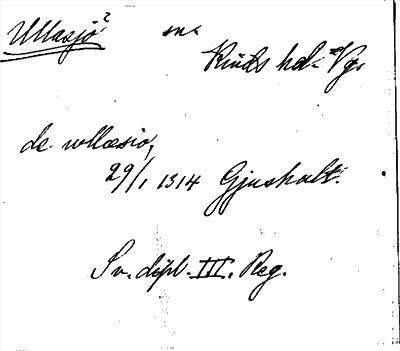 Ullasjö² sn.
Kinds hd. Vg.
de wllæsio,
29/1 1314 Gjushult.
Sv. dipl. III. Reg.